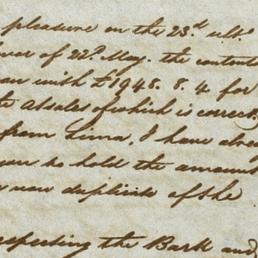 pleasure on the 23.d ult.o
of 22.d May. the contents
with £1948. 8. 4 for
of which is correct
from Lima, I have
to hold the amount
now duplicate of the
respecting the Bark and